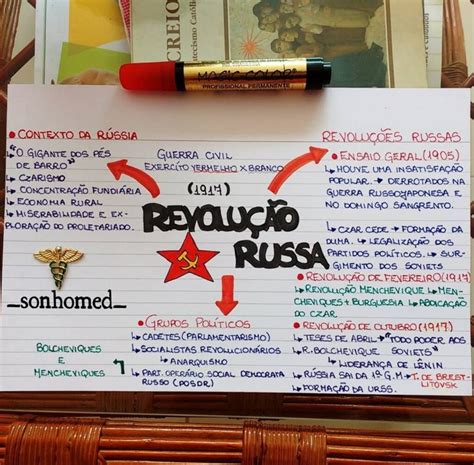 CREIO
Catecismo Católico
MAGIC COLOR
PROFISSIONAL PERMANENTE
• CONTEXTO DA RÚSSIA
↳ "O GIGANTE DOS PÉS DE BARRO"
↳ CZARISMO
↳ CONCENTRAÇÃO FUNDIÁRIA
↳ ECONOMIA RURAL
↳ MISERABILIDADE E EX-
PLORAÇÃO DO PROLETARIADO.
GUERRA CIVIL
EXÉRCITO VERMELHO X BRANCO
(1917)
REVOLUÇÃO
RUSSA
_sonhomed_
• GRUPOS POLÍTICOS
↳ CADETES (PARLAMENTARISMO)
↳ SOCIALISTAS REVOLUCIONÁRIOS
↳ ANARQUISMO
↳ PART. OPERÁRIO SOCIAL DEMOCRATA
RUSSO (POSDR)
BOLCHEVIQUES
E
MENCHEVIQUES
REVOLUÇÕES RUSSAS
• ENSAIO GERAL (1905)
↳ HOUVE UMA INSATISFAÇÃO
POPULAR. ↳ DERROTADOS NA
GUERRA RUSSOJAPONESA E NO
DOMINGO SANGRENTO.
↳ CZAR CEDE → FORMAÇÃO DA
DUMA. ↳ LEGALIZAÇÃO DOS
PARTIDOS POLÍTICOS. ↳ SUR-
GIMENTO DOS SOVIETS
• REVOLUÇÃO DE FEVEREIRO (1917)
↳ REVOLUÇÃO MENCHEVIQUE ↳ MEN-
CHEVIQUES + BURGUESIA ↳ ABDICAÇÃO
DO CZAR
• REVOLUÇÃO DE OUTUBRO (1917)
↳ TESES DE ABRIL → "TODO PODER AOS
↳ R. BOLCHEVIQUE SOVIETS"
↳ LIDERANÇA DE LÊNIN
↳ RÚSSIA SAI DA 1ª G.M → T. DE BREST-
LITOVSK
↳ FORMAÇÃO DA URSS.